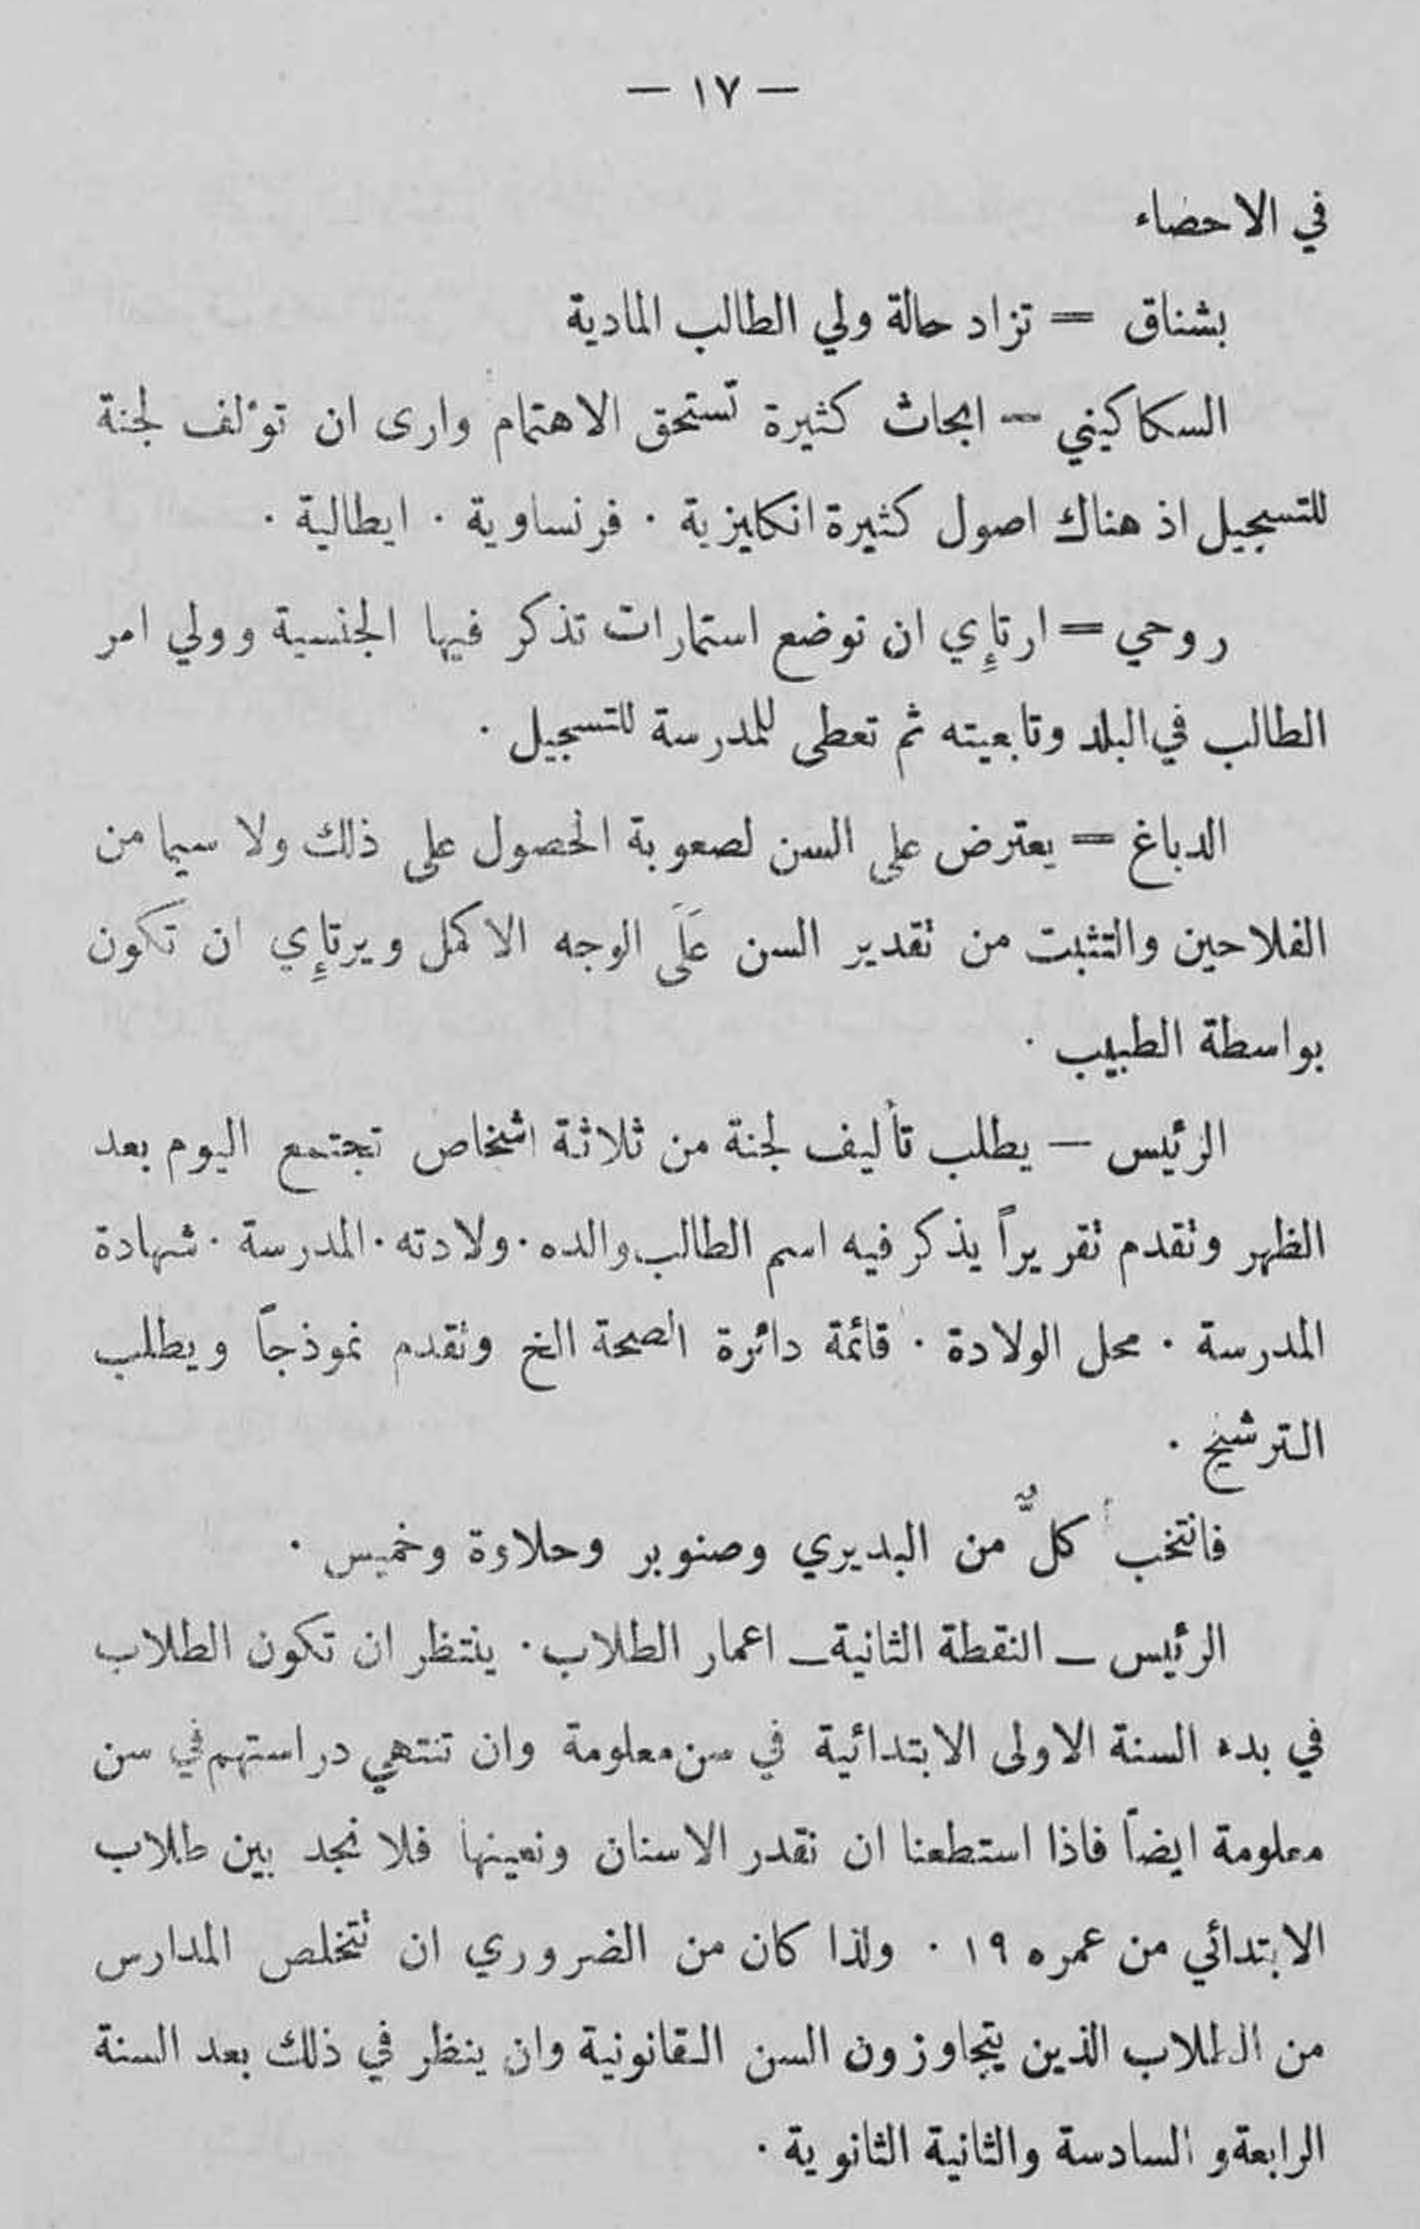 — ١٧ —
في الاحصاء
بشناق = تزاد حالة ولي الطالب المادية
السكاكيني — ابحاث كثيرة تستحق الاهتمام وارى ان تؤلف لجنة
للتسجيل اذ هناك اصول كثيرة انكليزية . فرنساوية . ايطالية .
روحي = ارتإي ان توضع استمارات تذكر فيها الجنسية وولي امر
الطالب في البلد وتابعيته ثم تعطى للمدرسة للتسجيل .
الدباغ = يعترض على السن لصعوبة الحصول على ذلك ولا سيما من
الفلاحين والتثبت من تقدير السن عَلَى الوجه الاكمل ويرتإي ان تكون
بواسطة الطبيب .
الرئيس — يطلب تأليف لجنة من ثلاثة اشخاص تجتمع اليوم بعد
الظهر وتقدم تقريراً يذكر فيه اسم الطالب والده . ولادته . المدرسة . شهادة
المدرسة . محل الولادة . قائمة دائرة الصحة الخ وتقدم نموذجاً ويطلب
الترشيح .
فانتخب كلٌّ من البديري وصنوبر وحلاوة وخميس .
الرئيس — النقطة الثانية — اعمار الطلاب . ينتظر ان تكون الطلاب
في بدء السنة الاولى الابتدائية في سن معلومة وان تنتهي دراستهم في سن
معلومة ايضاً فاذا استطعنا ان نقدر الاسنان ونعينها فلا نجد بين طلاب
الابتدائي من عمره ١٩ . ولذا كان من الضروري ان تتخلص المدارس
من الطلاب الذين يتجاوزون السن القانونية وان ينظر في ذلك بعد السنة
الرابعة و السادسة والثانية الثانوية .